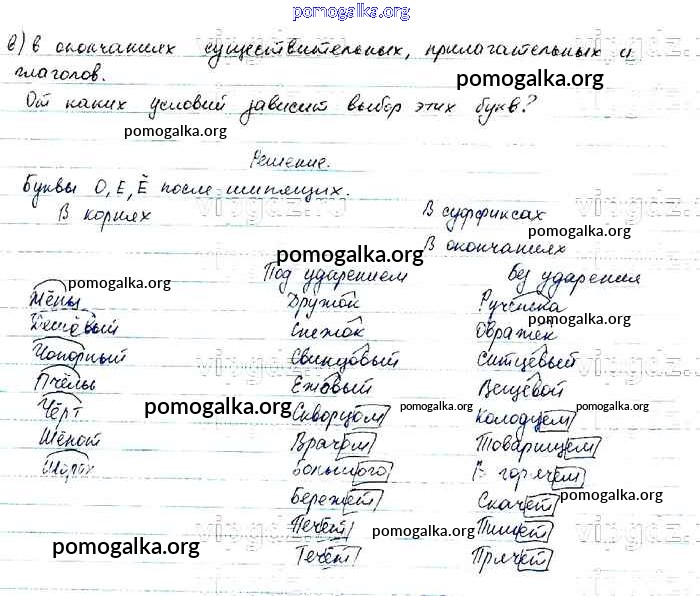 pomogalka.org
в) в окончаниях существительных, прилагательных и
глаголов.
pomogalka.org
От каких условий зависит выбор этих букв?
pomogalka.org
Решение.
Буквы О, Е, Ё после шипящих.
В корнях В суффиксах
В окончаниях
pomogalka.org pomogalka.org
Под ударением Без ударения
pomogalka.org
Жёны Дружок Ручонка
pomogalka.org
Дешёвый Снежок Овражек
Чопорный Свинцовый Ситцевый
Пчёлы Ежовый Вещевой
pomogalka.org pomogalka.org pomogalka.org
Чёрт Скворцом Колодцем
Шёпот Врачом Товарищем
Шорох Большого В горячем
pomogalka.org
Бережёт Скачет
Печёт Пишет
pomogalka.org
Течёт Прячет
pomogalka.org